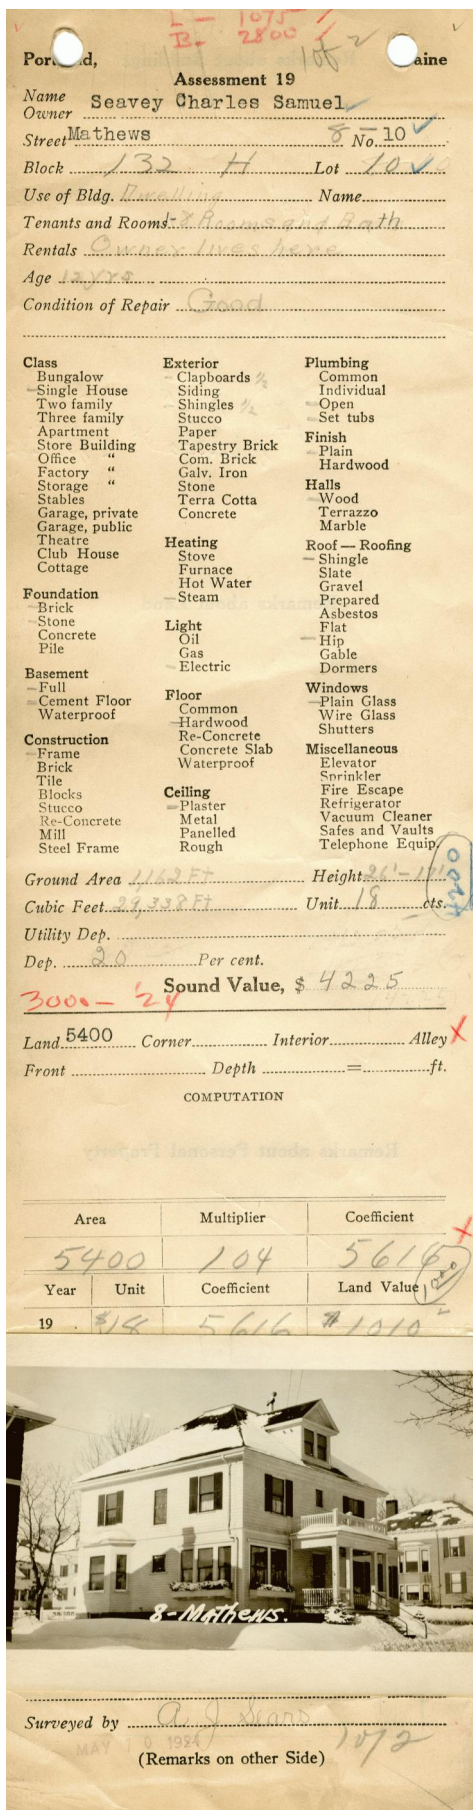 L - 1075 /
B- 2800 /
1 of 2
Portland, Maine
Assessment 19
Name
Owner Seavey Charles Samuel
Street Mathews 8 - No. 10
Block 132 H Lot 10
Use of Bldg. Dwelling Name
Tenants and Rooms 1-8 Rooms and Bath
Rentals Owner lives here
Age 12 yrs
Condition of Repair Good
Class
Bungalow
Single House
Two family
Three family
Apartment
Store Building
Office "
Factory "
Storage "
Stables
Garage, private
Garage, public
Theatre
Club House
Cottage
Foundation
Brick
Stone
Concrete
Pile
Basement
Full
Cement Floor
Waterproof
Construction
Frame
Brick
Tile
Blocks
Stucco
Re-Concrete
Mill
Steel Frame
Exterior
Clapboards 1/2
Siding
Shingles 1/2
Stucco
Paper
Tapestry Brick
Com. Brick
Galv. Iron
Stone
Terra Cotta
Concrete
Heating
Stove
Furnace
Hot Water
Steam
Light
Oil
Gas
Electric
Floor
Common
Hardwood
Re-Concrete
Concrete Slab
Waterproof
Ceiling
Plaster
Metal
Panelled
Rough
Plumbing
Common
Individual
Open
Set tubs
Finish
Plain
Hardwood
Halls
Wood
Terrazzo
Marble
Roof — Roofing
Shingle
Slate
Gravel
Prepared
Asbestos
Flat
Hip
Gable
Dormers
Windows
Plain Glass
Wire Glass
Shutters
Miscellaneous
Elevator
Sprinkler
Fire Escape
Refrigerator
Vacuum Cleaner
Safes and Vaults
Telephone Equip.
Ground Area 1,162 Ft Height
Cubic Feet 29,338 Ft Unit 18 cts.
4200
Utility Dep.
Dep. 20 Per cent.
Sound Value, $ 4225
3000 - '24
Land 5400 Corner Interior Alley X
Front Depth = ft.
COMPUTATION
Remarks about Personal Property
Area Multiplier Coefficient
5400 104 5616
Year Unit Coefficient Land Value
19 $18 5616 $1010
8-Mathews.
Surveyed by A J Sears
MAY 10 1924
(Remarks on other Side)